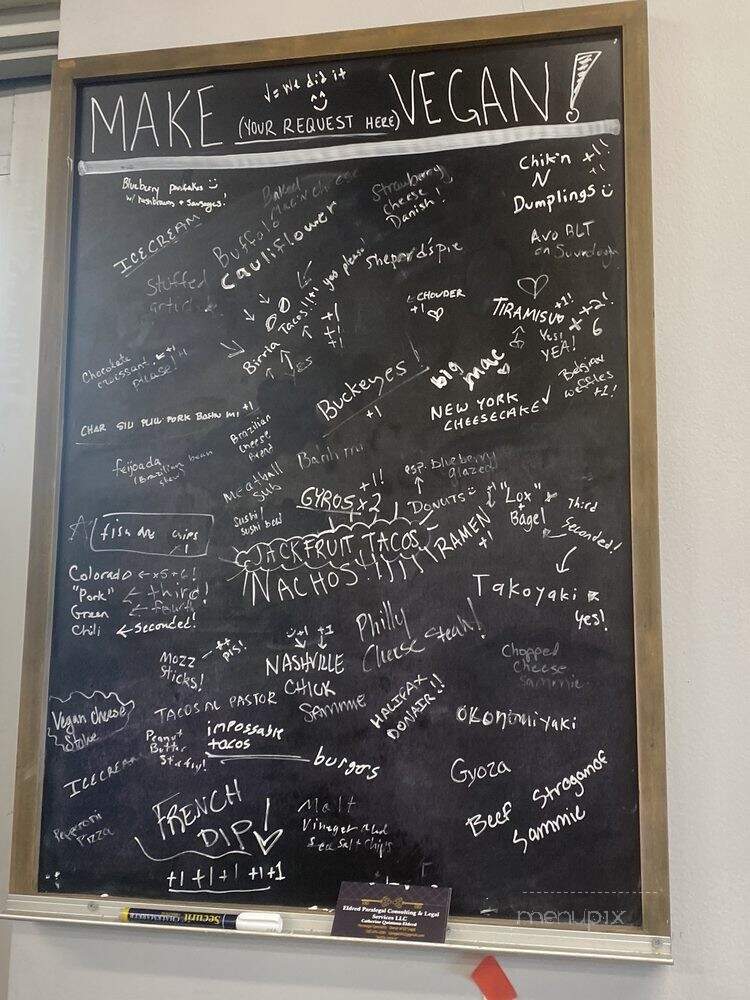 √ = We did it
MAKE (YOUR REQUEST HERE) VEGAN!
Blueberry pancakes
w/ hashbrowns + sausages!
Baked
Mac n cheese
Strawberry
cheese
Danish!
Chik'n +1!
+1
N
Dumplings
ICECREAM
Buffalo
Cauliflower
Sheperd's pie
Avo BLT
on Sourdough
Stuffed
Birria Tacos!!+1 yes please!
+1
+1
yes
CHOWDER
+1
TIRAMISU +1! x +2!
Yes! 6
YEA!
Chocolate +1
croissant
please!
Buckeyes!
+1
big
mac
NEW YORK
CHEESECAKE √
Belgian
waffles
+1!
CHAR SIU PULL PORK BANH MI +1
Brazilian
cheese
Bread
feijoada
(Brazilian bean
stew)
Banh mi
Meatball
Sub
Sushi!
Sushi bowl
GYROS x2 +1!
esp. blueberry
glazed
DONUTS
+1 "Lox"
+
Bagel
Third
Seconded!
fish and chips
+1
JACKFRUIT TACOS
NACHOS!!!!!
RAMEN
+1
Colorado ← x5 +6!
"Pork" ← third!
Green ← fourth
Chili ← Seconded!
Takoyaki
yes!
Philly
Cheese Steak!
Mozz
Sticks!
++
pls!
+1 +1
NASHVILLE
CHICK
SAMMIE
Chopped
Cheese
Sammie
HALIFAX
DONAIR!!
Vegan cheese
TACOS AL PASTOR
OKONOMIYAKI
Peanut
Butter
Stirfry!
impossable
tacos
burgors
ICECREAM
Gyoza
FRENCH
DIP
+1 +1 +1 +1 +1
Malt
Vinegar and
Sea salt chips
Beef Stroganof
Sammie
Peperoni
Pizza
Securit
CHALKMARKER
Eldred Paralegal Consulting & Legal
Services LLC
Catherine Quintana-Eldred
menupix